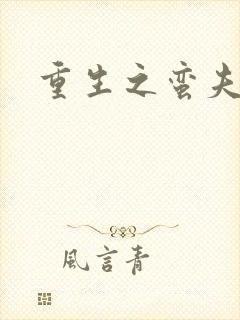 重生之蛮夫
風言青